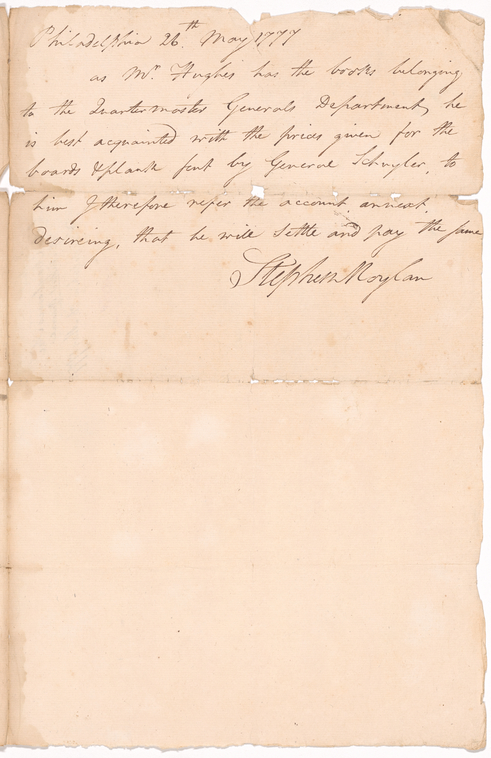 Philadelphia 26th May 1777
as Mr Hughes has the books belonging
to the Quartermaster Generals Department, he
is best acquainted with the prices given for the
boards & plank sent by General Schuyler, to
him I therefore refer the account annext,
desireing, that he will settle and pay the same
Stephen Moylan